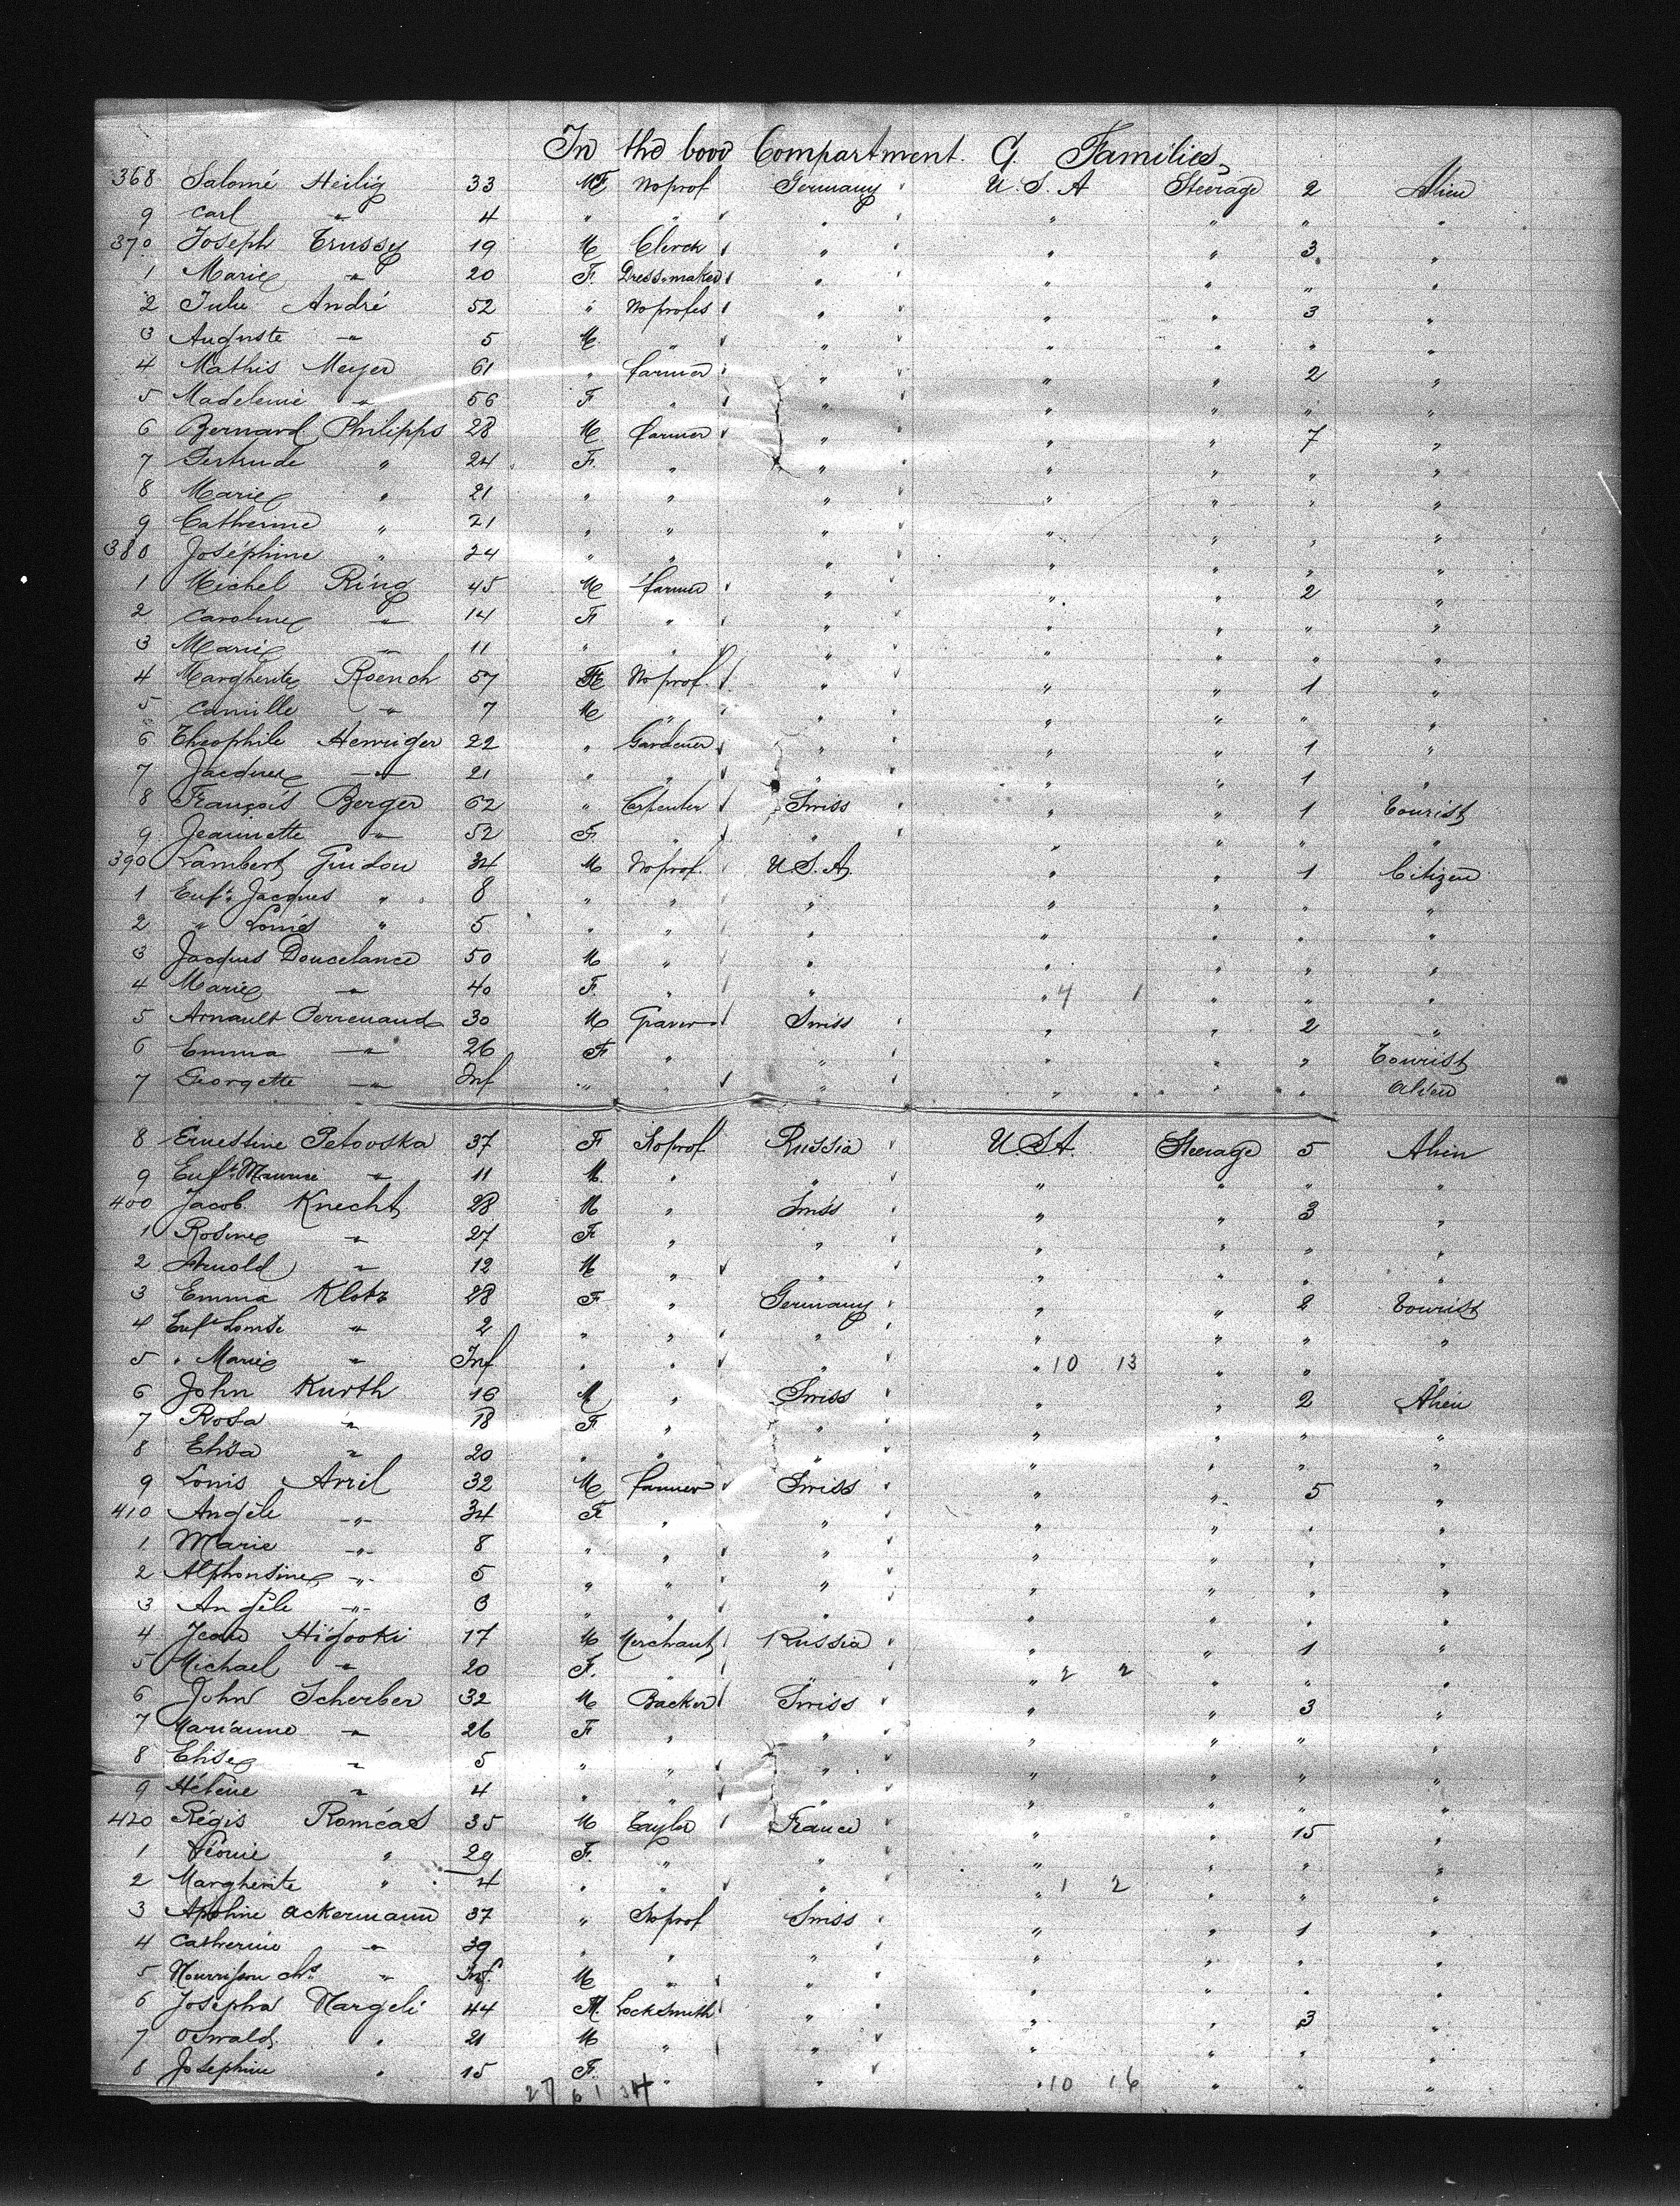 In the Compartment. G. Families
368 Salomé Heilig 33 F Noprof Germany U.S.A Steerage 2 Alien
9 Carl " 4 " " " " " " "
370 Joseph Trussy 19 M Clerck " " " 3 "
1 Marie " 20 F. Dressmaker " " " " "
2 Julie André 52 " Noprofes " " " 3 "
3 Auguste " 5 M " " " " " "
4 Mathis Meyer 61 " farmer " " " 2 "
5 Madeleine " 56 F " " " " " "
6 Bernard Philipps 28 M farmer " " " 7 "
7 Gertrude " 24 F. " " " " " "
8 Marie " 21 " " " " " " "
9 Catherine " 21 " " " " " " "
380 Joséphine " 24 " " " " " " "
1 Michel Ring 45 M farmer " " " 2 "
2 Caroline " 14 F " " " " " "
3 Marie " 11 " " " " " " "
4 Margherite Roench 57 F Noprof. " " " 1 "
5 Camille " 7 M " " " " " "
6 Theophile Henriger 22 " Gardener " " " 1 "
7 Jacques " 21 " " " " " 1 "
8 François Berger 62 " Carpenter Swiss " " 1 Tourist
9 Jeannette " 52 F. " " " " " "
390 Lambert Guidou 34 M Noprof. U.S.A. " " 1 Citizen
1 Enft Jacques " 8 " " " " " " "
2 " Louis " 5 " " " " " " "
3 Jacques Doucelance 50 M " " " " " "
4 Marie " 40 F. " " " 4 1 " " "
5 Arnault Perrenaud 30 M Graver Swiss " " 2 "
6 Emma " 26 F " " " " " Tourist
7 Georgette " Inf " " " " " " Alien
8 Ernestine Petovska 37 F Noprof Russia U.S.A. Steerage 5 Alien
9 Enft Maurice " 11 M. " " " " " "
400 Jacob Knecht 28 M " Swiss " " 3 "
1 Rosine " 27 F " " " " " "
2 Arnold " 12 M " " " " " "
3 Emma Klotz 28 F " Germany " " 2 Tourist
4 Enft Louise " 2 " " " " " " "
5 " Marie " Inf " " " " 10 13 " " "
6 John Kurth 16 M " Swiss " " 2 Alien
7 Rosa " 18 F " " " " " "
8 Elisa " 20 " " " " " " "
9 Louis Avril 32 M farmer Swiss " " 5 "
410 Angèle " 34 F " " " " " "
1 Marie " 8 " " " " " " "
2 Alphonsine " 5 " " " " " " "
3 Angèle " 3 " " " " " " "
4 Jean Higooki 17 M Merchant Russia " " 1 "
5 Michael " 20 F. " " " 2 2 " " "
6 John Scherber 32 M Backer Swiss " " 3 "
7 Marianne " 26 F " " " " " "
8 Elise " 5 " " " " " " "
9 Hélène " 4 " " " " " " "
420 Régis Roméas 35 M Taylor France " " 15 "
1 Léonie " 29 F. " " " " " "
2 Margherite " 4 " " " " 1 2 " " "
3 Apoline Ackermann 37 " Noprof Swiss " " 1 "
4 Catherine " 39 " " " " " " "
5 Nourrisson Chs " Inf. M " " " " " "
6 Joseph Nargeli 44 M. Locksmith " " " 3 "
7 Oswald " 21 M " " " " " "
8 Josephine " 15 F. " " " 10 16 " " "
27 6 1 34